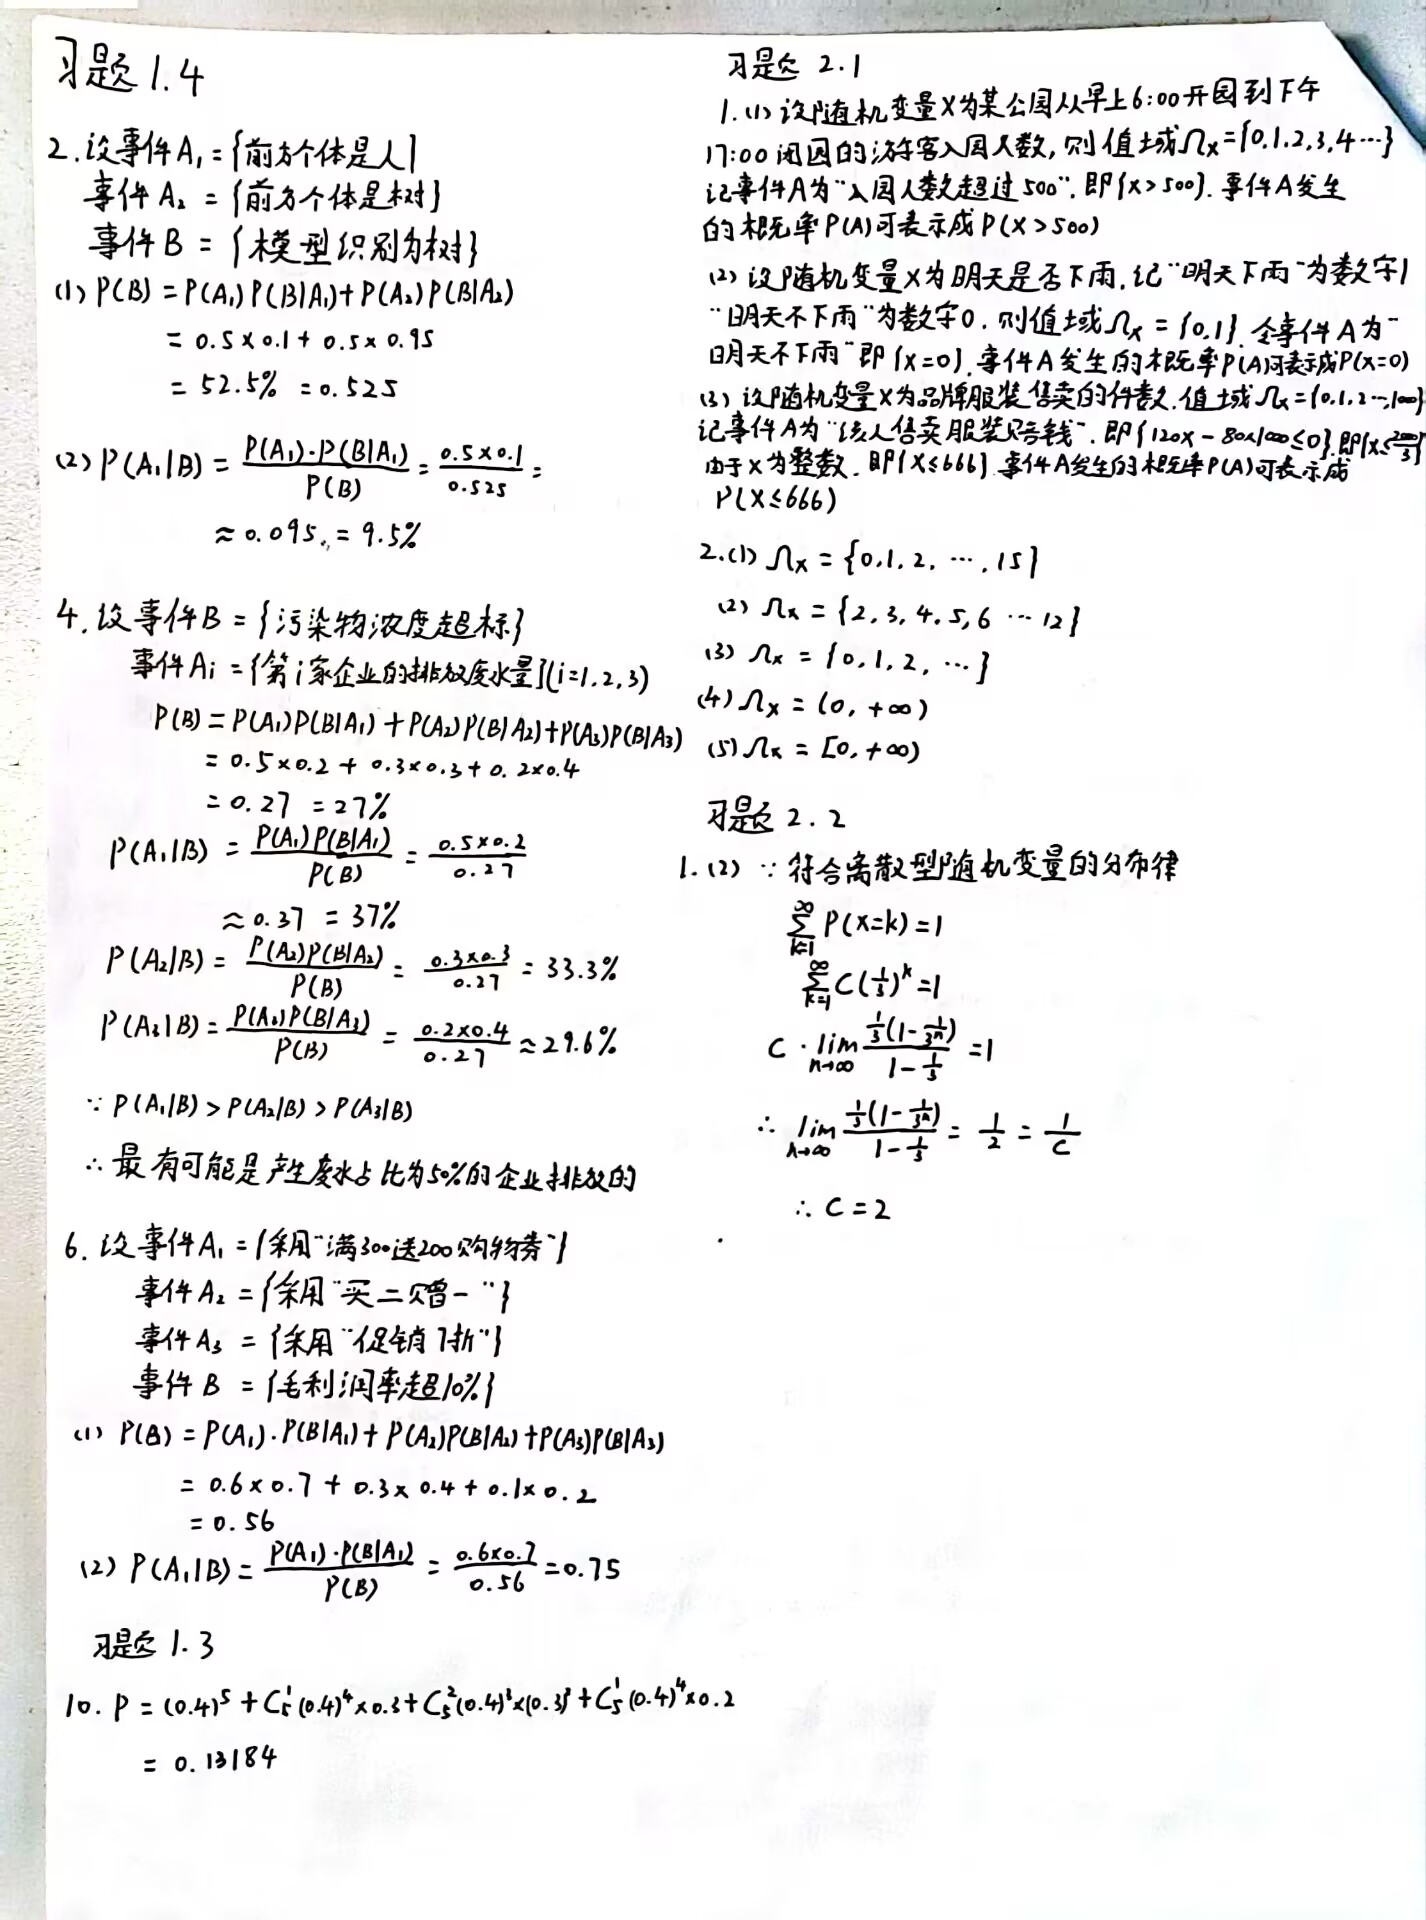 习题 1.4
2.设事件A₁={前方个体是人}
事件A₂={前方个体是树}
事件B={模型识别为树}
(1) P(B)=P(A₁)P(B|A₁)+P(A₂)P(B|A₂)
=0.5×0.1+0.5×0.95
=52.5% =0.525
(2) P(A₁|B)=P(A₁)·P(B|A₁)/P(B)=0.5×0.1/0.525=
≈0.095.=9.5%
4.设事件B={污染物浓度超标}
事件Ai={第i家企业的排放废水量}(i=1.2.3)
P(B)=P(A₁)P(B|A₁)+P(A₂)P(B|A₂)+P(A₃)P(B|A₃)
=0.5×0.2+0.3×0.3+0.2×0.4
=0.27 =27%
P(A₁|B)=P(A₁)P(B|A₁)/P(B)=0.5×0.2/0.27
≈0.37 =37%
P(A₂|B)=P(A₂)P(B|A₂)/P(B)=0.3×0.3/0.27=33.3%
P(A₃|B)=P(A₃)P(B|A₃)/P(B)=0.2×0.4/0.27≈29.6%
∵P(A₁|B)>P(A₂|B)>P(A₃|B)
∴最有可能是产生废水占比为50%的企业排放的
6.设事件A₁={采用“满300送200购物券”}
事件A₂={采用“买二赠一”}
事件A₃={采用“促销7折”}
事件B={毛利润率超10%}
(1) P(B)=P(A₁)·P(B|A₁)+P(A₂)P(B|A₂)+P(A₃)P(B|A₃)
=0.6×0.7+0.3×0.4+0.1×0.2
=0.56
(2) P(A₁|B)=P(A₁)·P(B|A₁)/P(B)=0.6×0.7/0.56=0.75
习题 1.3
10. P=(0.4)⁵+C₅¹(0.4)⁴×0.3+C₅²(0.4)³×(0.3)²+C₅¹(0.4)⁴×0.2
=0.13184
习题 2.1
1.(1) 设随机变量X为某公园从早上6:00开园到下午
17:00闭园的游客入园人数,则值域Ωx={0.1.2.3,4…}
记事件A为“入园人数超过500”.即{X>500}.事件A发生
的概率P(A)可表示成P(X>500)
(2) 设随机变量X为明天是否下雨.记“明天下雨”为数字1
“明天不下雨”为数字0.则值域Ωx={0,1}.令事件A为“
明天不下雨”即{X=0}.事件A发生的概率P(A)可表示成P(X=0)
(3) 设随机变量X为品牌服装售卖的件数.值域Ωx={0.1.2…,1000}
记事件A为“该人售卖服装赔钱”.即{120X-80×1000≤0}.即{X≤2000/3}
由于X为整数.即{X≤666}.事件A发生的概率P(A)可表示成
P(X≤666)
2.(1) Ωx={0,1.2, …,15}
(2) Ωx={2,3,4.5,6…12}
(3) Ωx={0,1,2,…}
(4) Ωx=(0,+∞)
(5) Ωx=[0,+∞)
习题 2.2
1.(2) ∵符合离散型随机变量的分布律
∑_{k=1}^{∞} P(X=k)=1
∑_{k=1}^{∞} C(1/3)^k=1
C·lim_{n→∞} (1/3(1-1/3ⁿ))/(1-1/3)=1
∴lim_{n→∞} (1/3(1-1/3ⁿ))/(1-1/3)=1/2=1/C
∴C=2